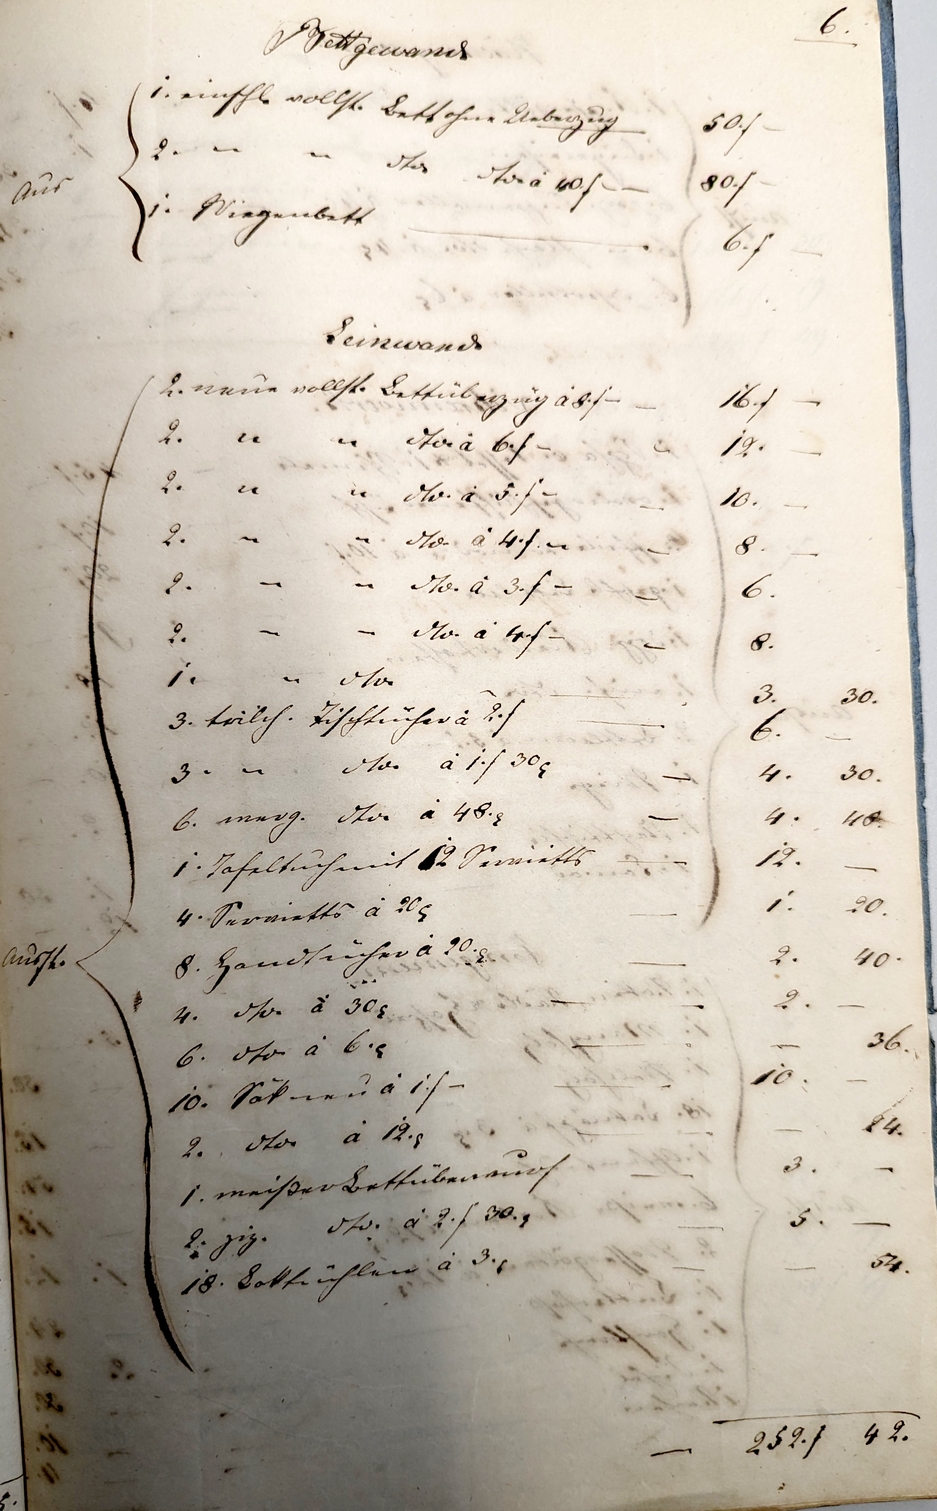 6.
Bettgewand
1. einschl. vollst. Bett ohne Ueberzug 50. f –
Aus
2. " " dto. dto. à 40 f – 80. f –
1. Wiegenbett 6. f –
Leinwand
2. neue vollst. Bettüberzüg à 8. f – 16. f –
2. " " dto. à 6. f – 12. –
2. " " dto. à 5. f – 10. –
2. " " dto. à 4. f. 8. –
2. " " dto. à 3. f – 6.
2. " " dto. à 4. f – 8.
1. " dto. 3. 30.
3. trilch. Tischtücher à 2. f 6. –
3. " dto. à 1. f 30 4. 30.
6. werg. dto. à 48. 4. 48.
1. Tafeltuch mit 12 Servietts 12. –
4. Servietts à 20 1. 20.
Ausst.
8. Handtücher à 20. 2. 40.
4. dto. à 30 2. –
6. dto. à 6. – 36.
10. Säk neu à 1. f – 10. –
2. dto. à 12. – 24.
1. weißer Bettüberwurf 3. –
2. ziz. dto. à 2. f 30. 5. –
18. à 3. – 54.
– 252. f 42.